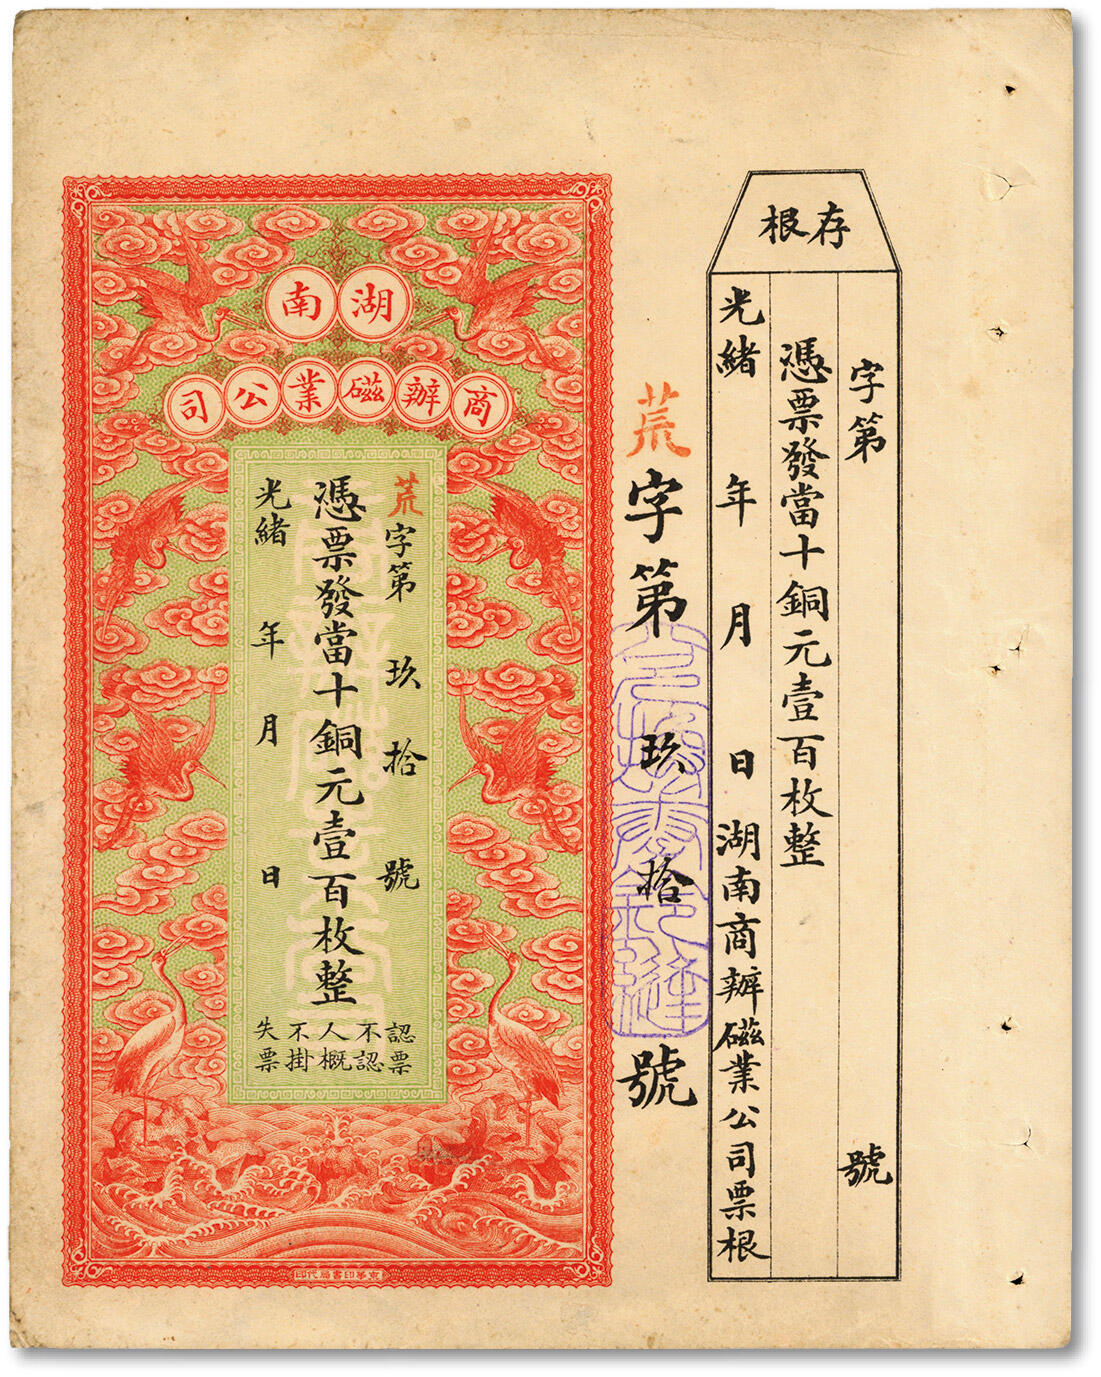 存根
字第 號
憑票發當十銅元壹百枚整
光緒 年 月 日湖南商辦磁業公司票根
荒字第玖拾號
湖南
商辦磁業公司
荒字第玖拾號
憑票發當十銅元壹百枚整
光緒 年 月 日
認票
不認
人概
不掛
失票
京華印書局代印